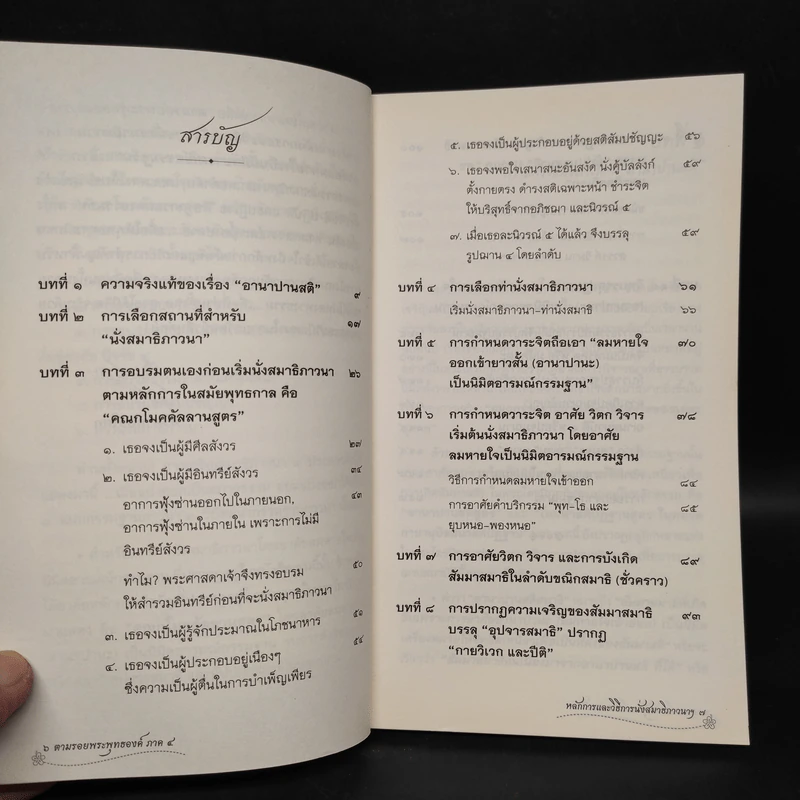 สารบัญ
บทที่ ๑ ความจริงแท้ของเรื่อง “อานาปานสติ” ๙
บทที่ ๒ การเลือกสถานที่สำหรับ ๑๗
“นั่งสมาธิภาวนา”
บทที่ ๓ การอบรมตนเองก่อนเริ่มนั่งสมาธิภาวนา ๒๖
ตามหลักการในสมัยพุทธกาล คือ
“คณกโมคคัลลานสูตร”
๑. เธอจงเป็นผู้มีศีลสังวร ๒๗
๒. เธอจงเป็นผู้มีอินทรีย์สังวร ๓๔
อาการฟุ้งซ่านออกไปในภายนอก, ๔๓
อาการฟุ้งซ่านในภายใน เพราะการไม่มี
อินทรีย์สังวร
ทำไม? พระศาสดาเจ้าจึงทรงอบรม ๕๐
ให้สำรวมอินทรีย์ก่อนที่จะนั่งสมาธิภาวนา
๓. เธอจงเป็นผู้รู้จักประมาณในโภชนาหาร ๕๑
๔. เธอจงเป็นผู้ประกอบอยู่เนืองๆ ๕๔
ซึ่งความเป็นผู้ตื่นในการบำเพ็ญเพียร
๖ ตามรอยพระพุทธองค์ ภาค ๔
๕. เธอจงเป็นผู้ประกอบอยู่ด้วยสติสัมปชัญญะ ๕๖
๖. เธอจงพอใจเสนาสนะอันสงัด นั่งคู้บัลลังก์ ๕๙
ตั้งกายตรง ดำรงสติเฉพาะหน้า ชำระจิต
ให้บริสุทธิ์จากอภิชฌา และนิวรณ์ ๕
๗. เมื่อเธอละนิวรณ์ ๕ ได้แล้ว จึงบรรลุ ๕๙
รูปฌาน ๔ โดยลำดับ
บทที่ ๔ การเลือกท่านั่งสมาธิภาวนา ๖๑
เริ่มนั่งสมาธิภาวนา-ท่านั่งสมาธิ ๖๖
บทที่ ๕ การกำหนดวาระจิตถือเอา “ลมหายใจ ๗๐
ออกเข้ายาวสั้น (อานาปานะ)
เป็นนิมิตอารมณ์กรรมฐาน”
บทที่ ๖ การกำหนดวาระจิต อาศัย วิตก วิจาร ๗๘
เริ่มต้นนั่งสมาธิภาวนา โดยอาศัย
ลมหายใจเป็นนิมิตอารมณ์กรรมฐาน
วิธีการกำหนดลมหายใจเข้าออก ๘๔
การอาศัยคำบริกรรม “พุท-โธ และ ๘๕
ยุบหนอ-พองหนอ”
บทที่ ๗ การอาศัยวิตก วิจาร และการบังเกิด ๘๙
สัมมาสมาธิในลำดับขณิกสมาธิ (ชั่วคราว)
บทที่ ๘ การปรากฏความเจริญของสัมมาสมาธิ ๙๓
บรรลุ “อุปจารสมาธิ” ปรากฏ
“กายวิเวก และปีติ”
หลักการและวิธีการนั่งสมาธิภาวนาฯ ๗